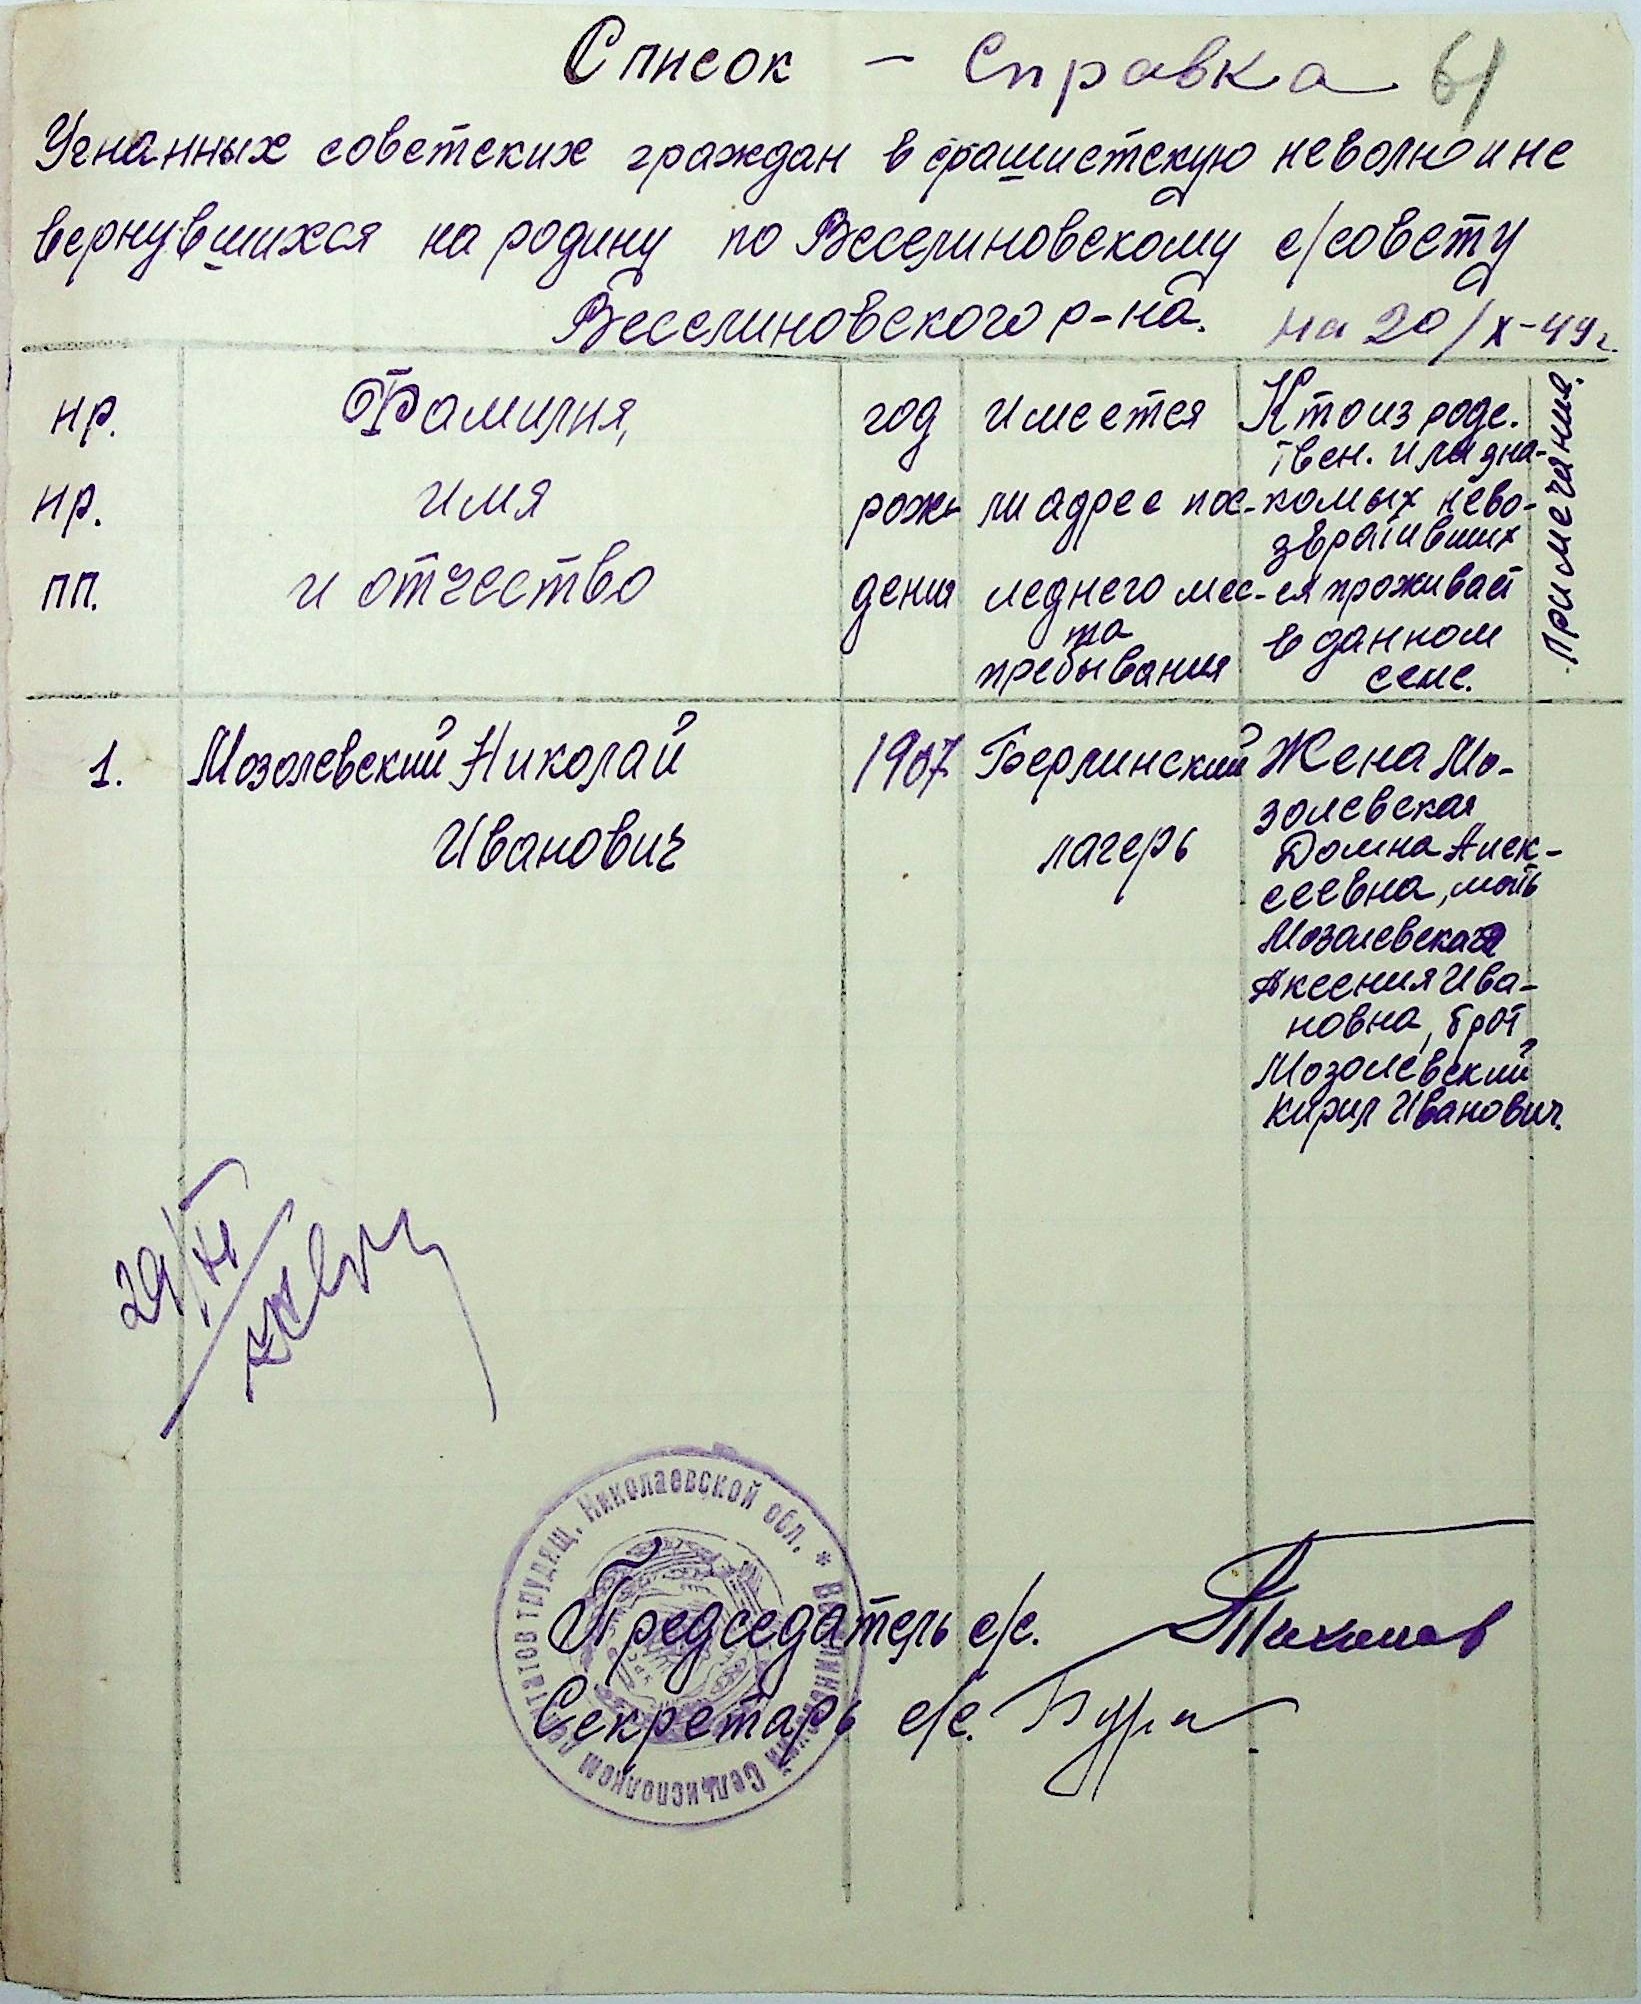 Список – Справка 61
Угнанных советских граждан в фашистскую неволю и не
вернувшихся на родину по Веселиновскому с/совету
Веселиновского р-на. на 20/X-49г.
нр.
нр.
пп.
Фамилия,
имя
и отчество
год
рож-
дения
имеется
ли адрес пос-
леднего мес-
та
пребывания
Кто из родс.
твен. или зна-
комых нево-
звративших
ся проживает
в данном
селе.
Примечание.
1.
Мозолевский Николай
Иванович
1907
Берлинский
лагерь
Жена Мо-
золевская
Домна Алек-
сеевна, мать
Мозолевская
Аксения Ива-
новна, брат
Мозолевский
Кирил Иванович.
29/XI
Николаевской обл. * Веселиновский Сельисполком депутатов трудящ.
Председатель с/с.
Секретарь с/с.